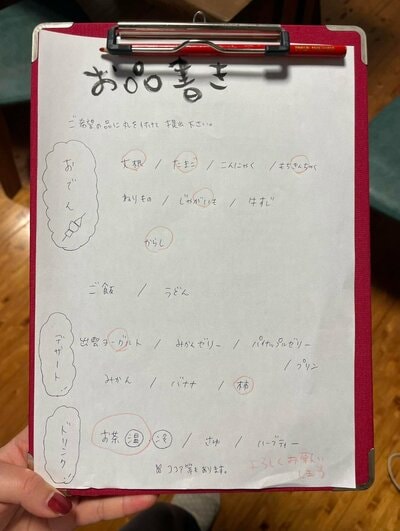 お品書き
ご希望の品に丸を付けて提出下さい。
おでん
大根 / たまご / こんにゃく / もちきんちゃく
ねりもの / じゃがいも / 牛すじ
からし
ご飯 / うどん
デザート
出雲ヨーグルト / みかんゼリー / パイナップルゼリー
/ プリン
みかん / バナナ / 柿
ドリンク
お茶 温 冷 / さゆ / ハーブティー
※ ココア等もあります。
よろしくお願いします